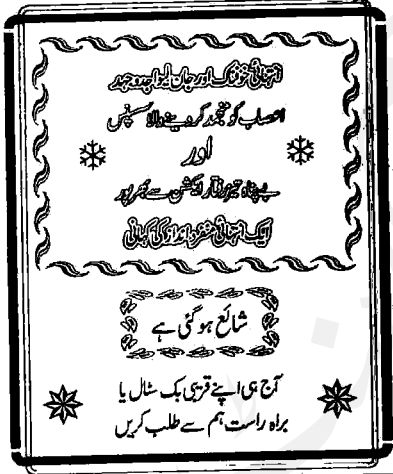 انتہائی خوفناک اور جان لیوا جدوجہد
اعصاب کو منجمد کر دینے والا سسپنس
اور
بے پناہ تیز رفتار ایکشن سے بھرپور
ایک انتہائی منفرد انداز کی کہانی
شائع ہو گئی ہے
آج ہی اپنے قریبی بک سٹال یا
براہ راست ہم سے طلب کریں